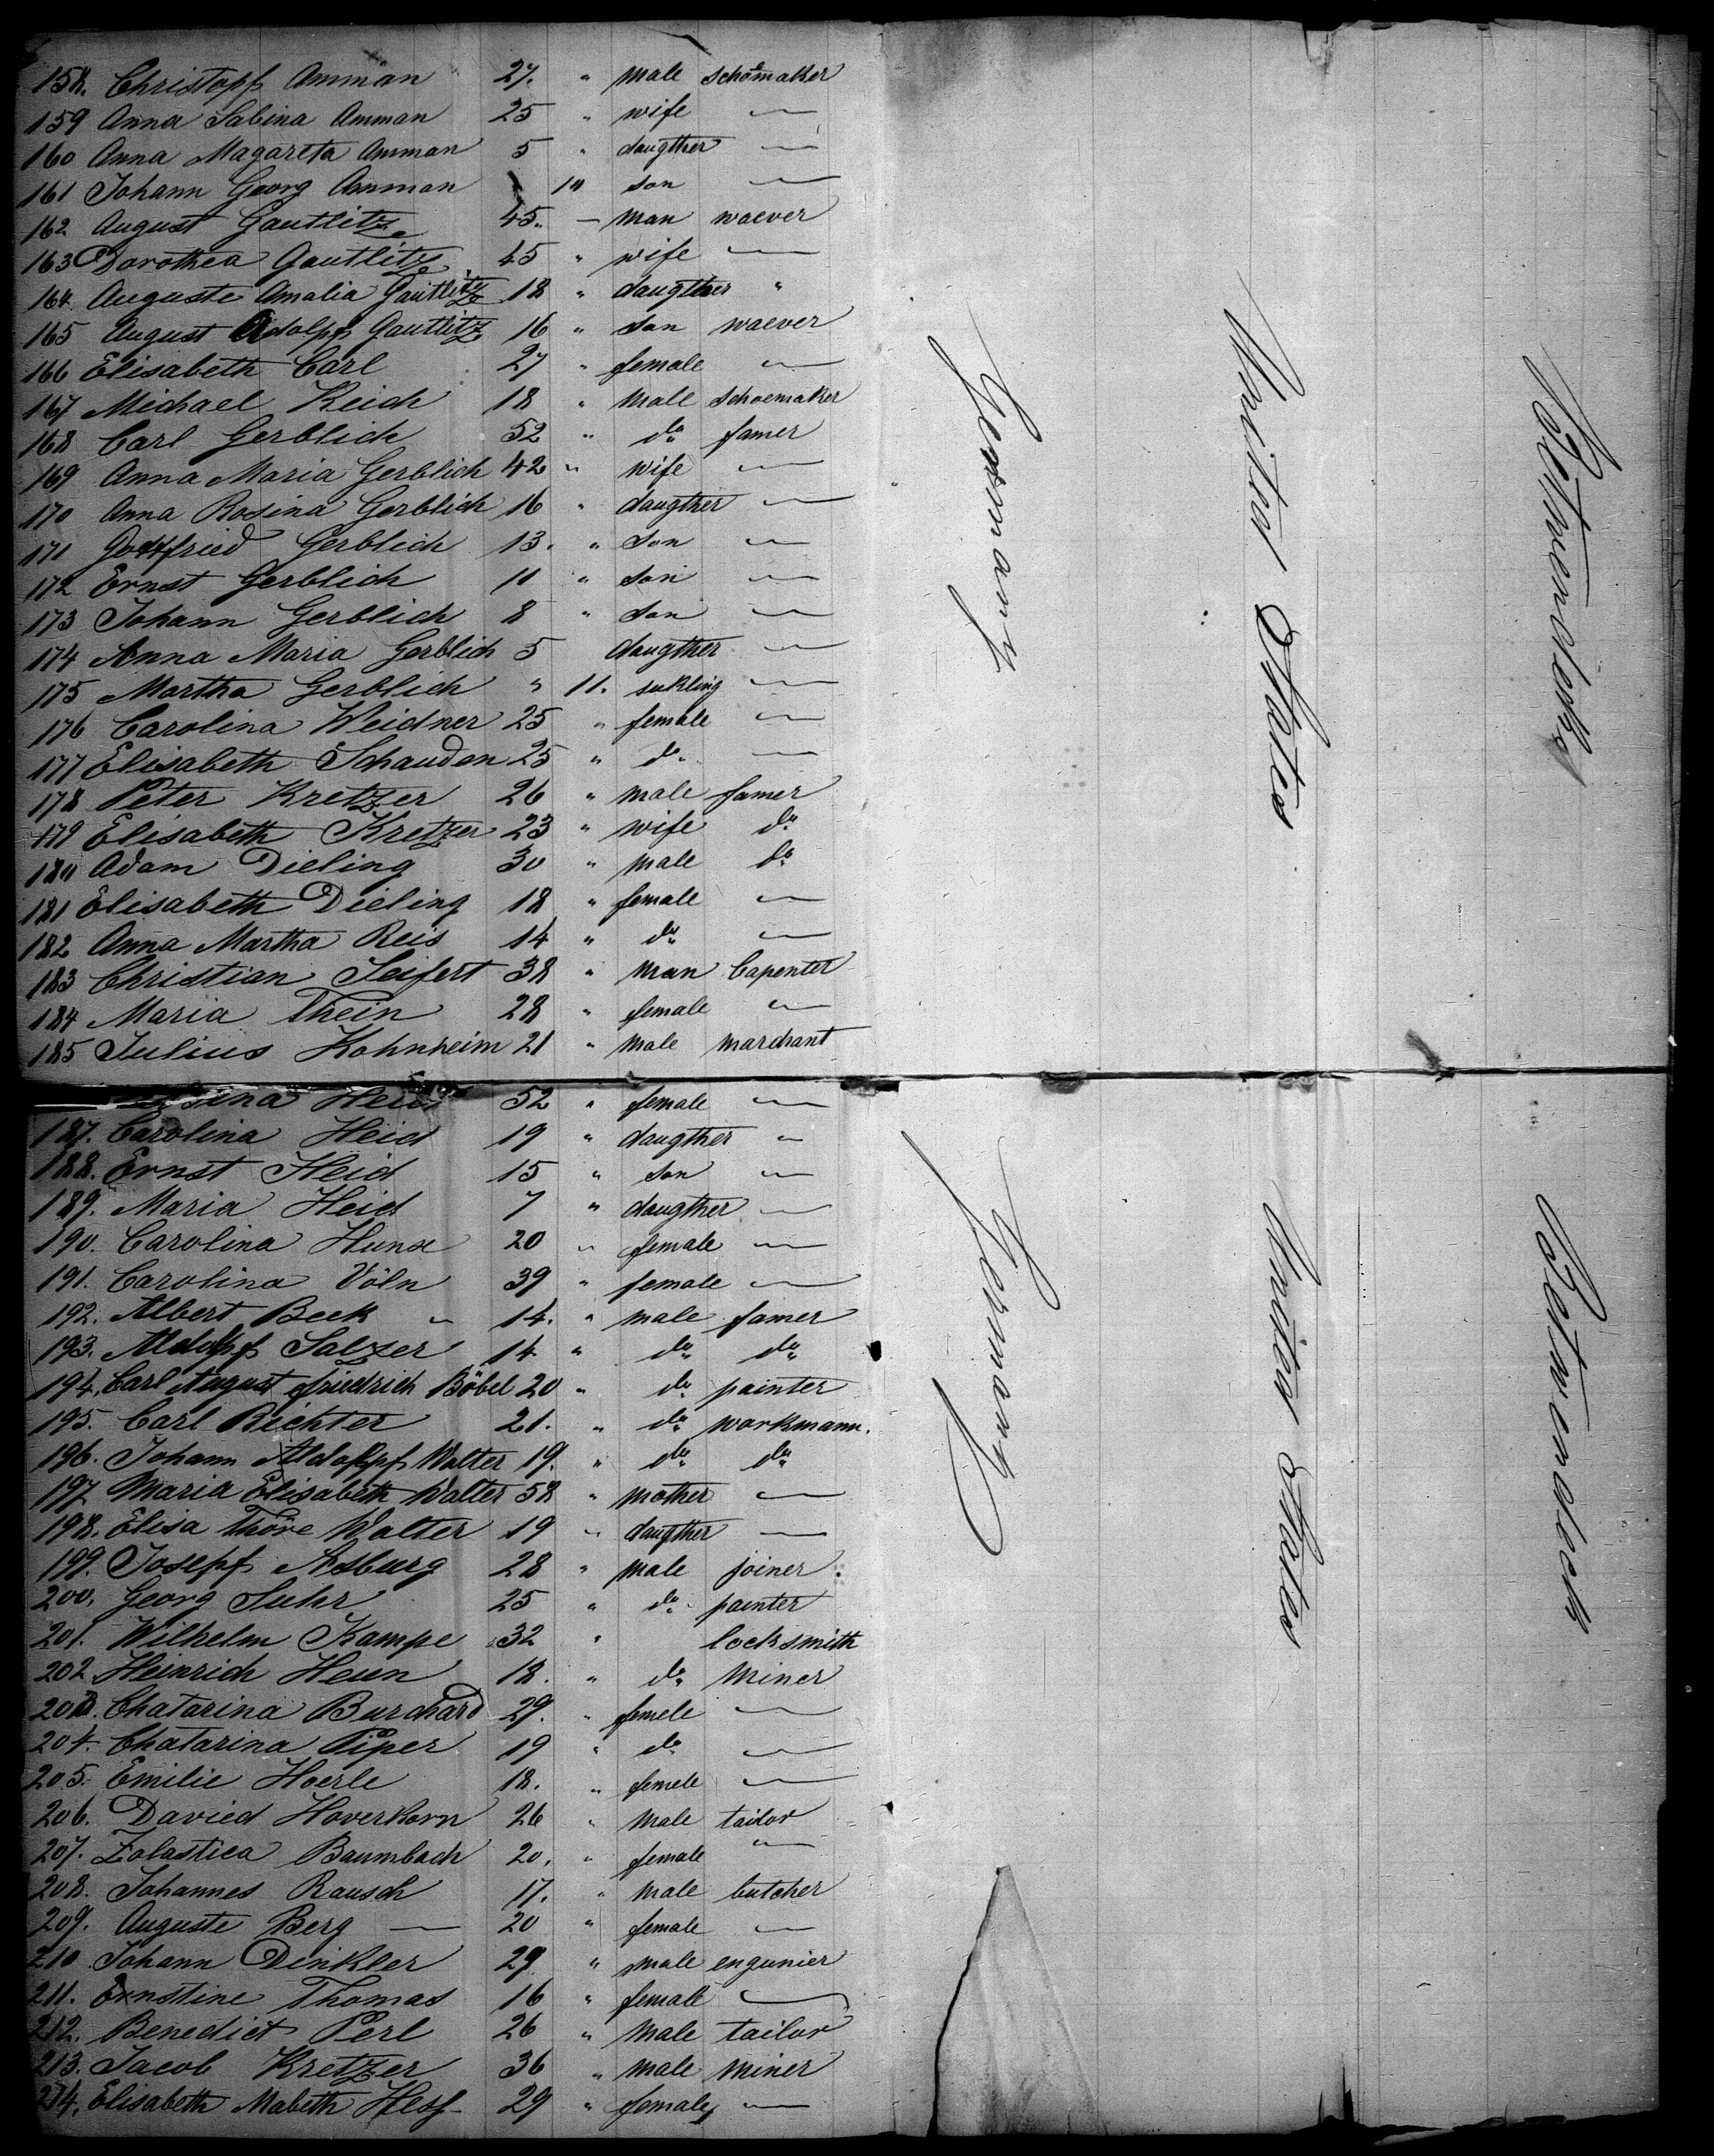 158. Christopf Amman 27. " male schoemaker
159 Anna Sabina Amman 25 " wife —
160 Anna Magareta Amman 5 " daugther —
161 Johann Georg Amman 10 son —
162 August Gautlitz 45. — man waever
163 Dorothea Gautlitz 45 " wife —
164 Auguste Amalia Gautlitz 18 " daugther "
165 August Adolpf Gautlitz 16 " son waever
166 Elisabeth Carl 27 " female —
167 Michael Reich 18 " male schoemaker
168 Carl Gerblich 52 " do famer
169 Anna Maria Gerblich 42 " wife —
170 Anna Rosina Gerblich 16 " daugther —
171 Gottfried Gerblich 13. " son —
172 Ernst Gerblich 11 " son —
173 Johann Gerblich 8 " son —
174 Anna Maria Gerblich 5 daugther —
175 Martha Gerblich " 11. sukling —
176 Carolina Weidner 25 " female —
177 Elisabeth Schauden 25 " do —
178 Peter Kretzer 26 " male famer
179 Elisabeth Kretzer 23 " wife do
180 Adam Dieling 30 " male do
181 Elisabeth Dieling 18 " female —
182 Anna Martha Reis 14 " do —
183 Christian Seifert 38 " man Capenter
184 Maria Thein 28 " female —
185 Julius Kohnheim 21 " male marchant
Heid 52 " female —
187. Carolina Heid 19 " daugther —
188. Ernst Heid 15 " son —
189. Maria Heid 7 " daugther —
190. Carolina Hunse 20 " female —
191. Carolina Völn 39 " female —
192. Albert Beck " 14. " male famer
193. Aldolpf Salzer 14 " do do
194. Carl August friedrich Böbel 20 " do painter
195. Carl Richter 21. " do workmann.
196. Johann Aldolpf Walter 19. " do do
197 Maria Elisabeth Walter 58 " mother —
198. Elisa Walter 19 " daugther —
199. Josepf Asburg 28 " male joiner.
200. Georg Suhr 25 " do painter
201. Wilhelm Kampe 32 " locksmith
202 Heinrich Heun 18. " do Miner
203. Chatarina Burchard 29. " femele —
204. Chatarina Piper 19 " do —
205. Emilie Hoerle 18. " femele —
206. Davied Haverkorn 26 " male tailor
207. Zolastica Baumbach 20. " female —
208. Johannes Rausch 17. " male butcher
209. Auguste Berg — 20 " female —
210 Johann Dinkler 29 " male engunier
211. Ernstine Thomas 16 " female —
212. Benedict Perl 26 " male tailor
213. Jacob Kretzer 36 " male miner
214. Elisabeth Mabeth Hess 29 " female —
Germany
United States
Between decks
Germany
United States
Between deck